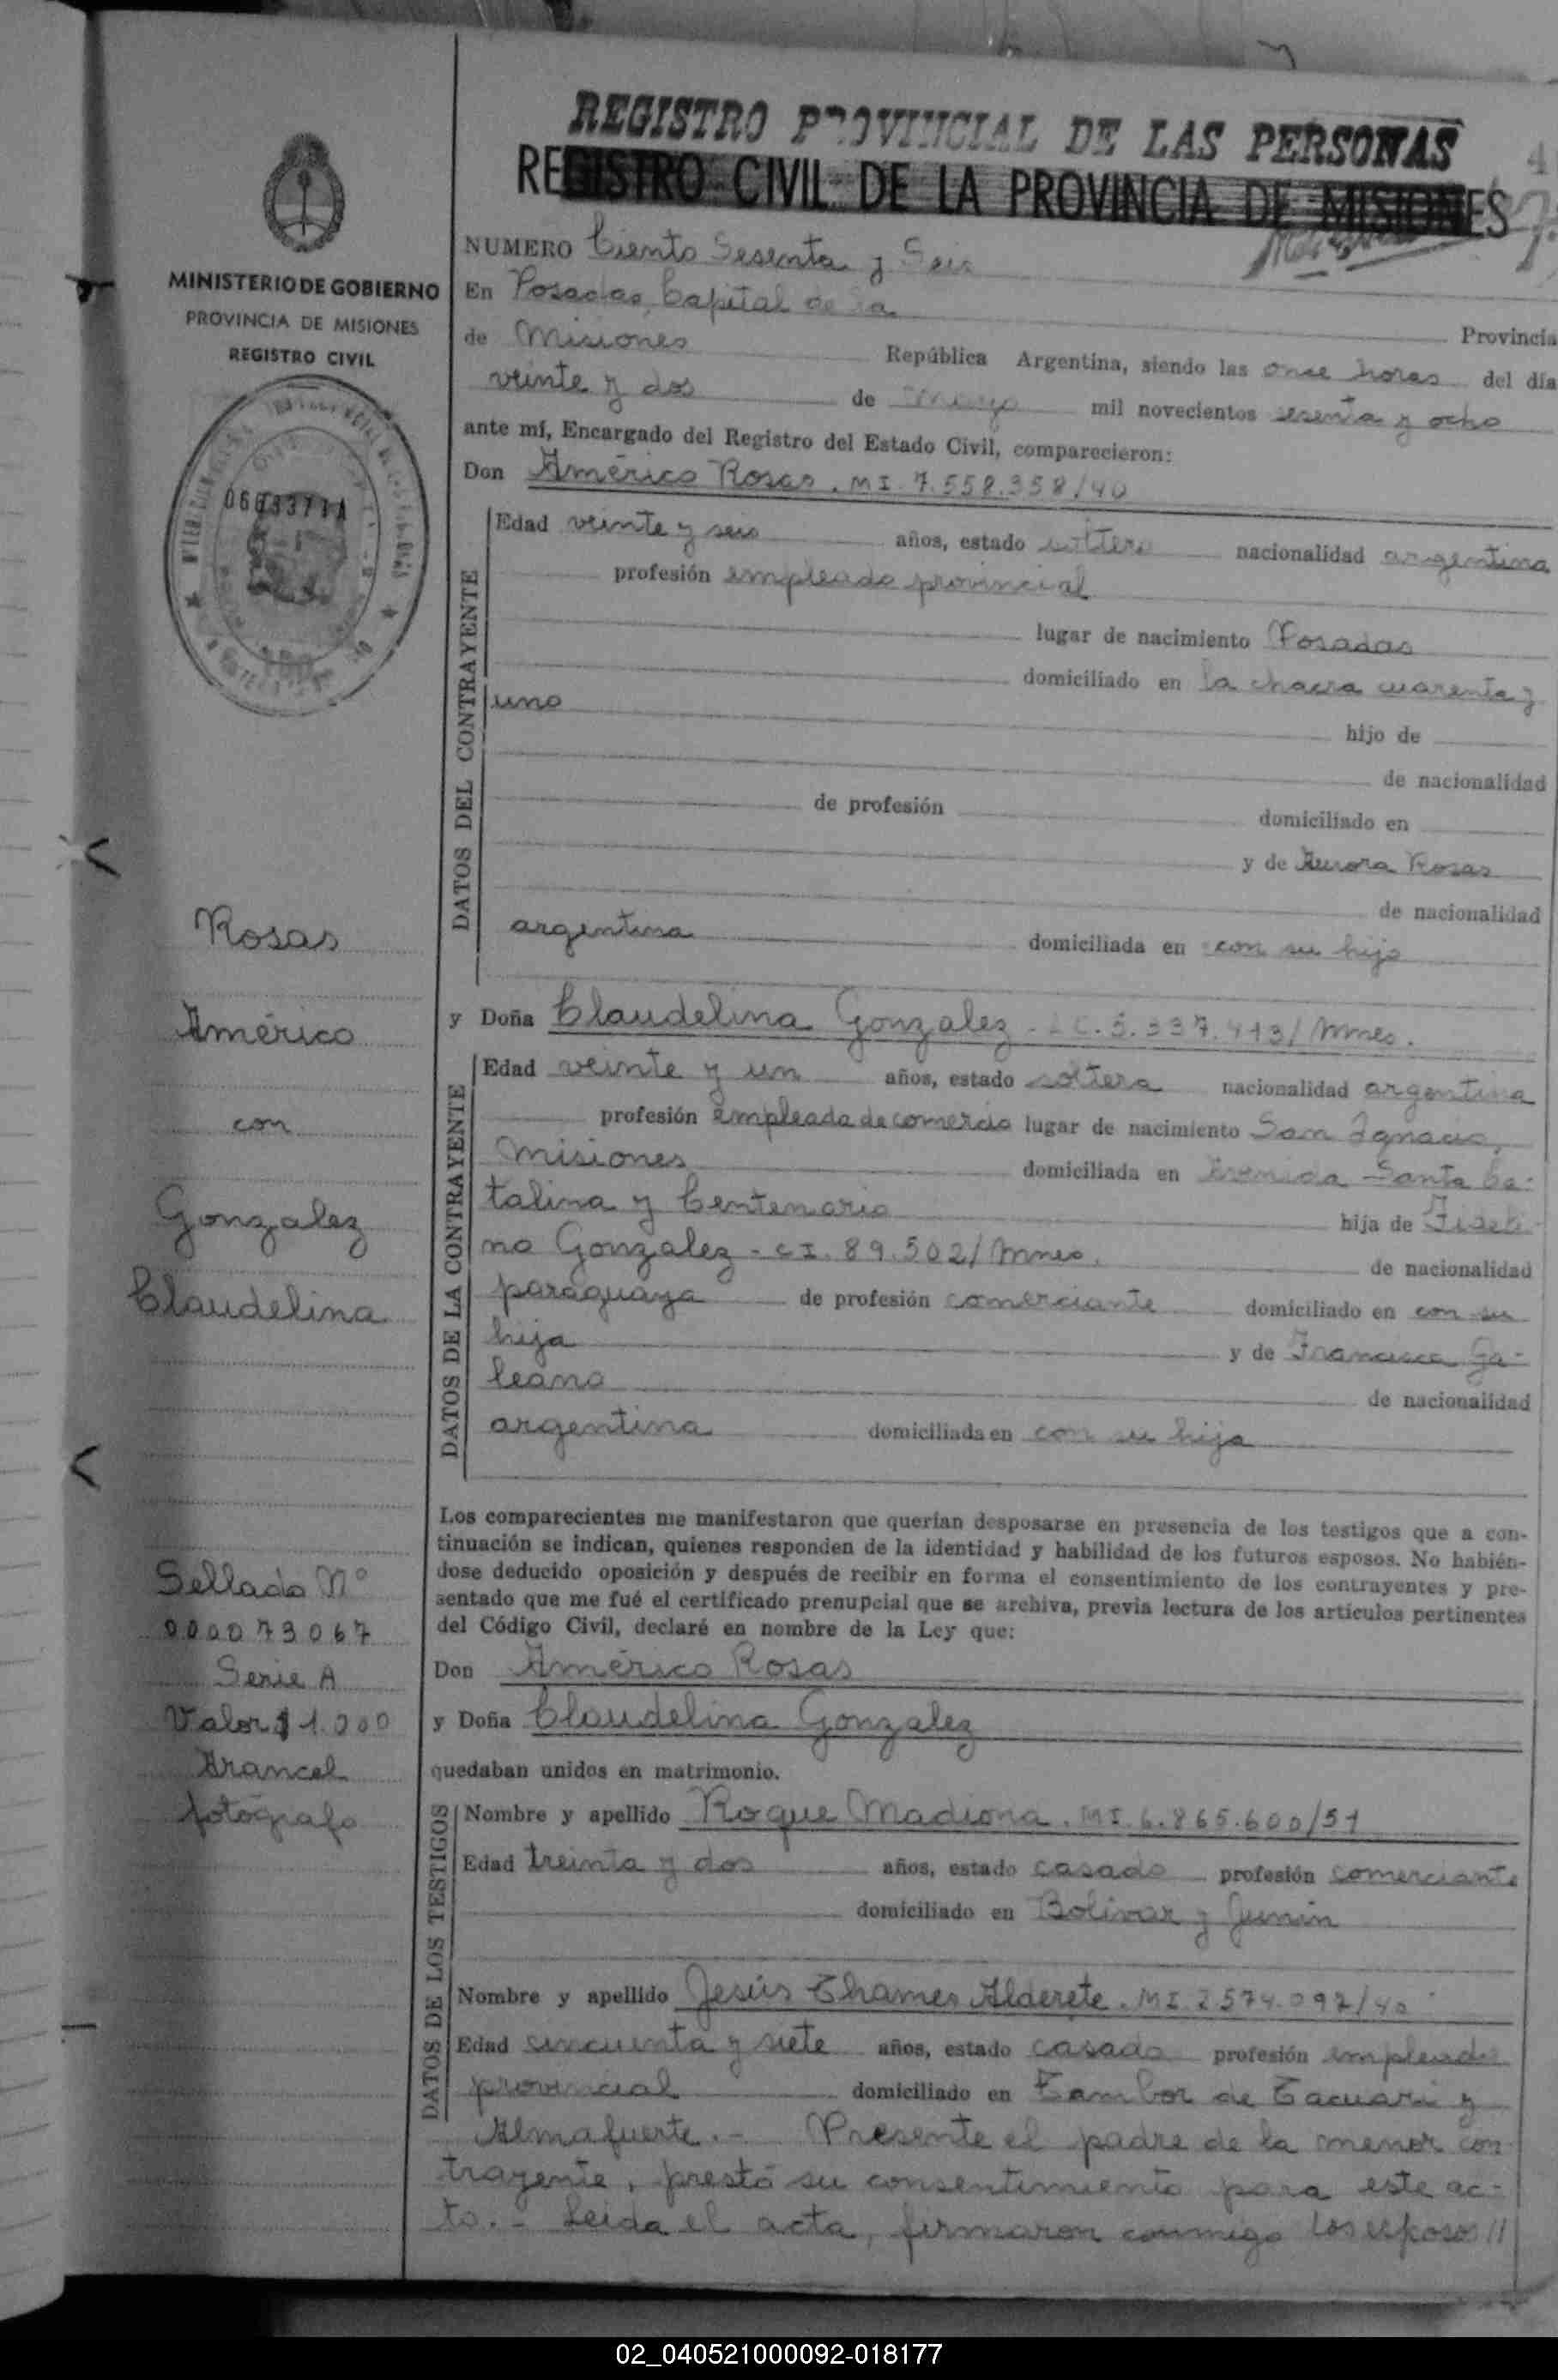 REGISTRO PROVINCIAL DE LAS PERSONAS
REGISTRO CIVIL DE LA PROVINCIA DE MISIONES
MINISTERIO DE GOBIERNO
PROVINCIA DE MISIONES
REGISTRO CIVIL
0663371A
NUMERO Ciento Sesenta y Seis
En Posadas, Capital de la
Provincia
de Misiones República Argentina, siendo las once horas del día
veinte y dos de mayo mil novecientos sesenta y ocho
ante mí, Encargado del Registro del Estado Civil, comparecieron:
Don Américo Rosas. MI. 7.558.358/40
DATOS DEL CONTRAYENTE
Edad veinte y seis años, estado soltero nacionalidad argentina
profesión empleado provincial
lugar de nacimiento Posadas
domiciliado en la chacra cuarenta y
uno
hijo de
de nacionalidad
de profesión domiciliado en
y de Aurora Rosas
de nacionalidad
argentina domiciliada en con su hijo
y Doña Claudelina Gonzalez. LC. 5.337.413/Mnes.
DATOS DE LA CONTRAYENTE
Edad veinte y un años, estado soltera nacionalidad argentina
profesión empleada de comercio lugar de nacimiento San Ignacio,
Misiones domiciliada en Avenida Santa Ca-
talina y Centenario hija de
no Gonzalez - CI. 89.502/Mnes. de nacionalidad
paraguaya de profesión comerciante domiciliado en con su
hija y de Francisca Ga-
leano de nacionalidad
argentina domiciliada en con su hija
Los comparecientes me manifestaron que querían desposarse en presencia de los testigos que a con-
tinuación se indican, quienes responden de la identidad y habilidad de los futuros esposos. No habién-
dose deducido oposición y después de recibir en forma el consentimiento de los contrayentes y pre-
sentado que me fué el certificado prenupcial que se archiva, previa lectura de los artículos pertinentes
del Código Civil, declaré en nombre de la Ley que:
Don Américo Rosas
y Doña Claudelina Gonzalez
quedaban unidos en matrimonio.
DATOS DE LOS TESTIGOS
Nombre y apellido Roque Madiona. MI. 6.865.600/51
Edad treinta y dos años, estado casado profesión comerciante
domiciliado en Bolivar y Junin
Nombre y apellido Jesús Thames Alderete. MI. 2.574.097/40
Edad cincuenta y siete años, estado casado profesión empleado
provincial domiciliado en Tambor de Tacuari y
Almafuerte.- Presente el padre de la menor con-
trayente, prestó su consentimiento para este ac-
to.- Leida el acta, firmaron conmigo los esposos //
Rosas
Américo
con
Gonzalez
Claudelina
Sellado Nº
000073067
Serie A
Valor $ 1.000
Arancel
fotógrafo
02_040521000092-018177